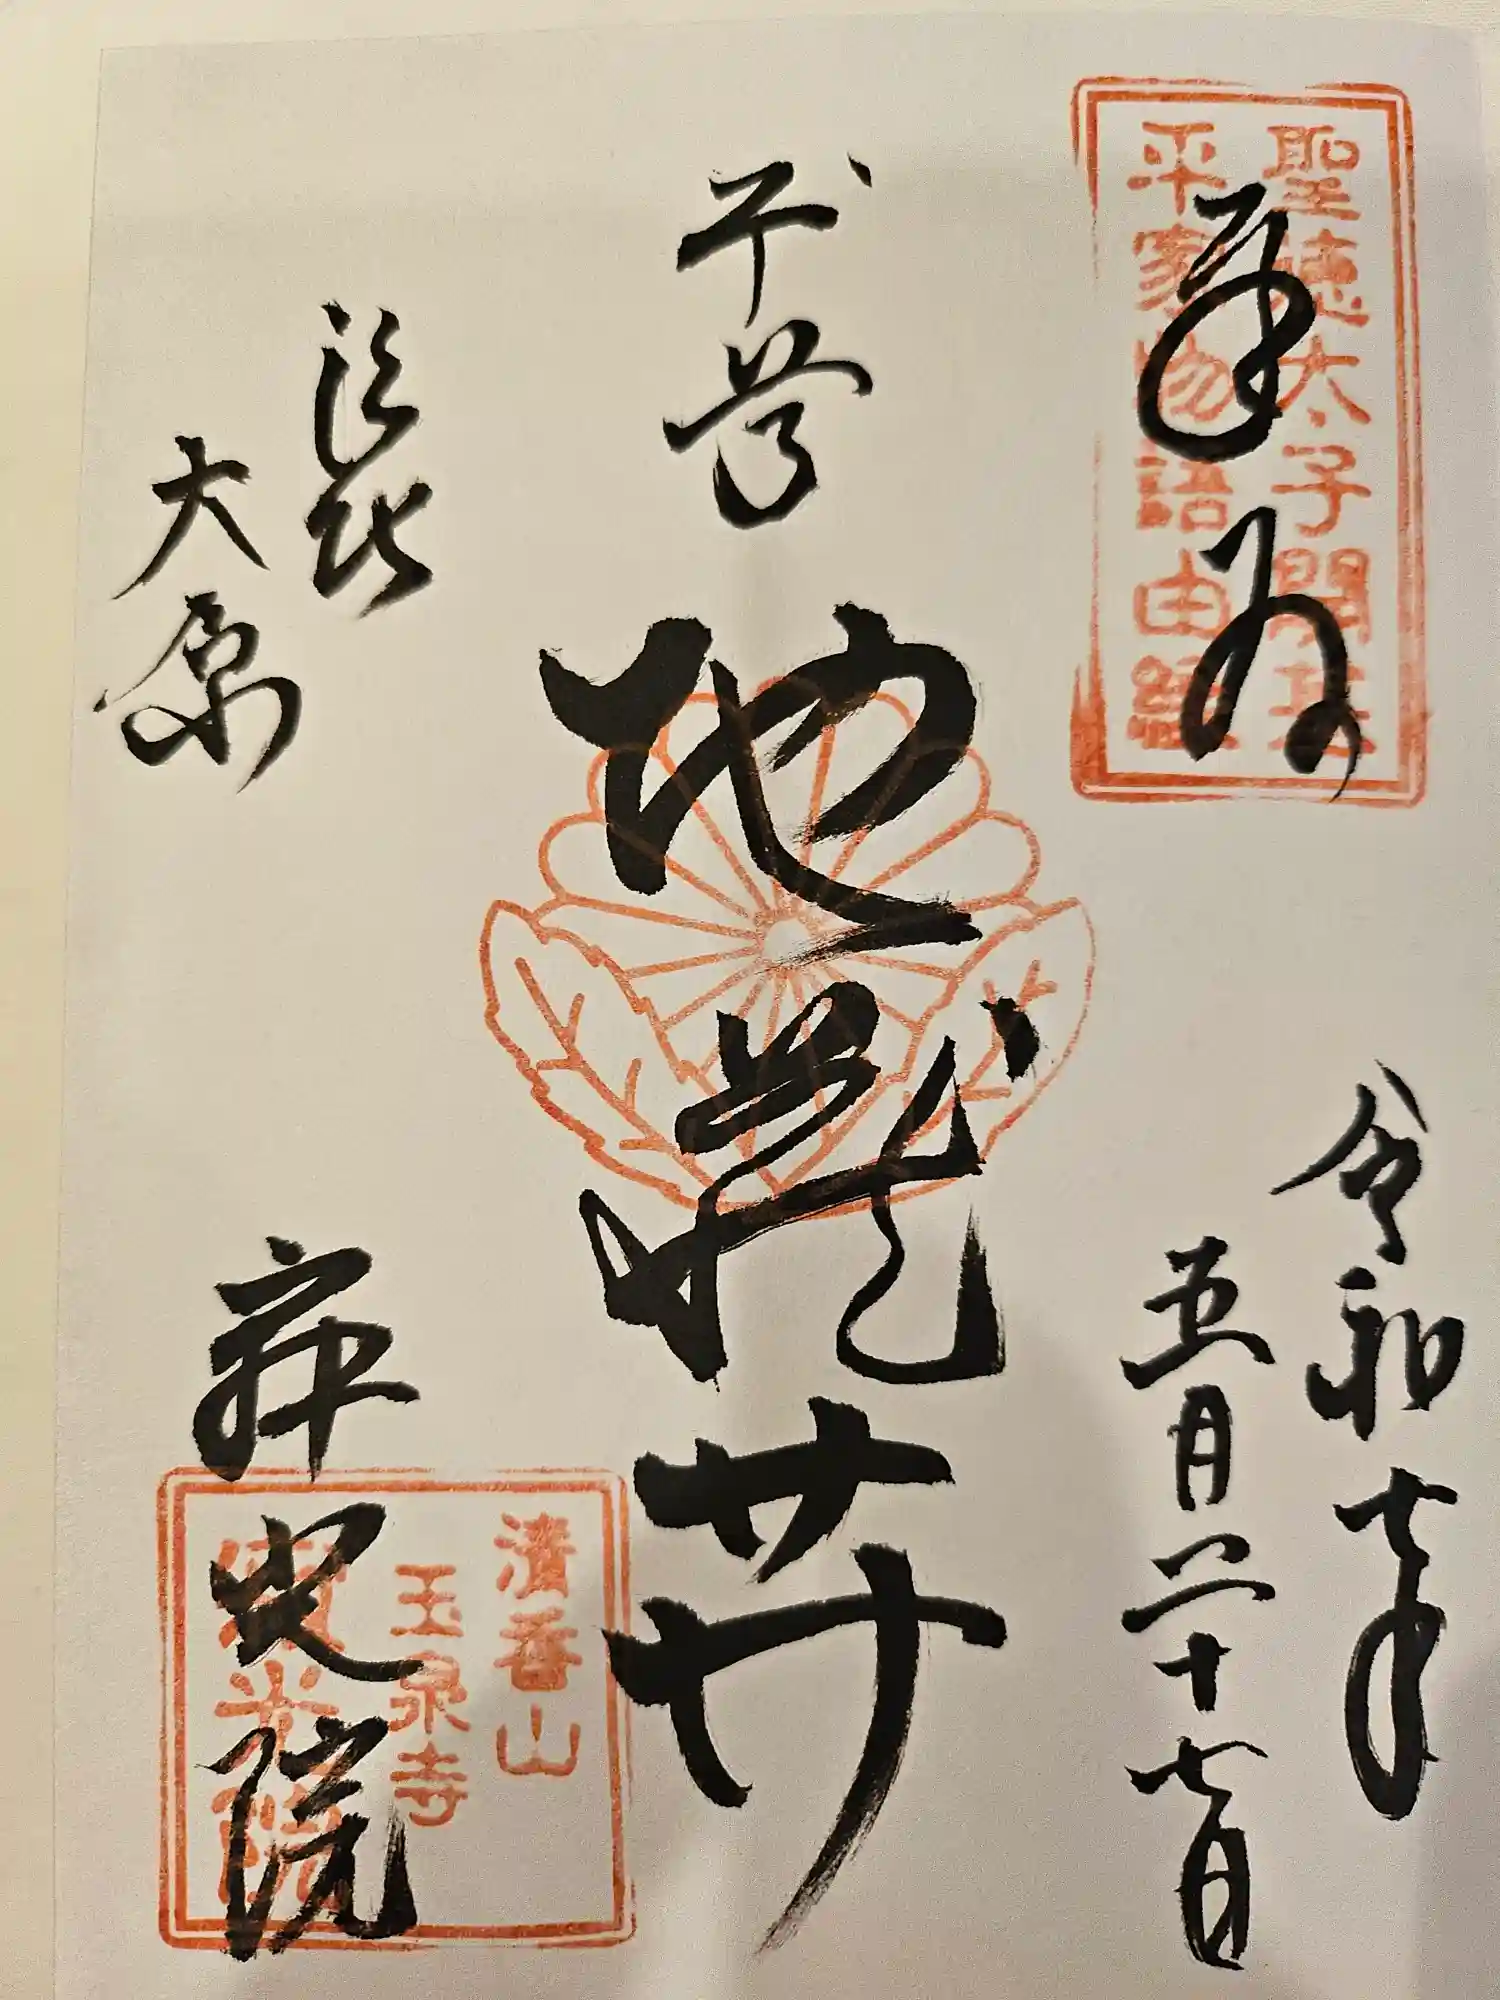 聖徳太子開基
平家物語由縁
奉拝
令和七年
五月二十七日
本尊
地蔵𦬇
洛北
大原
寂光院
清香山
玉泉寺
寂光院